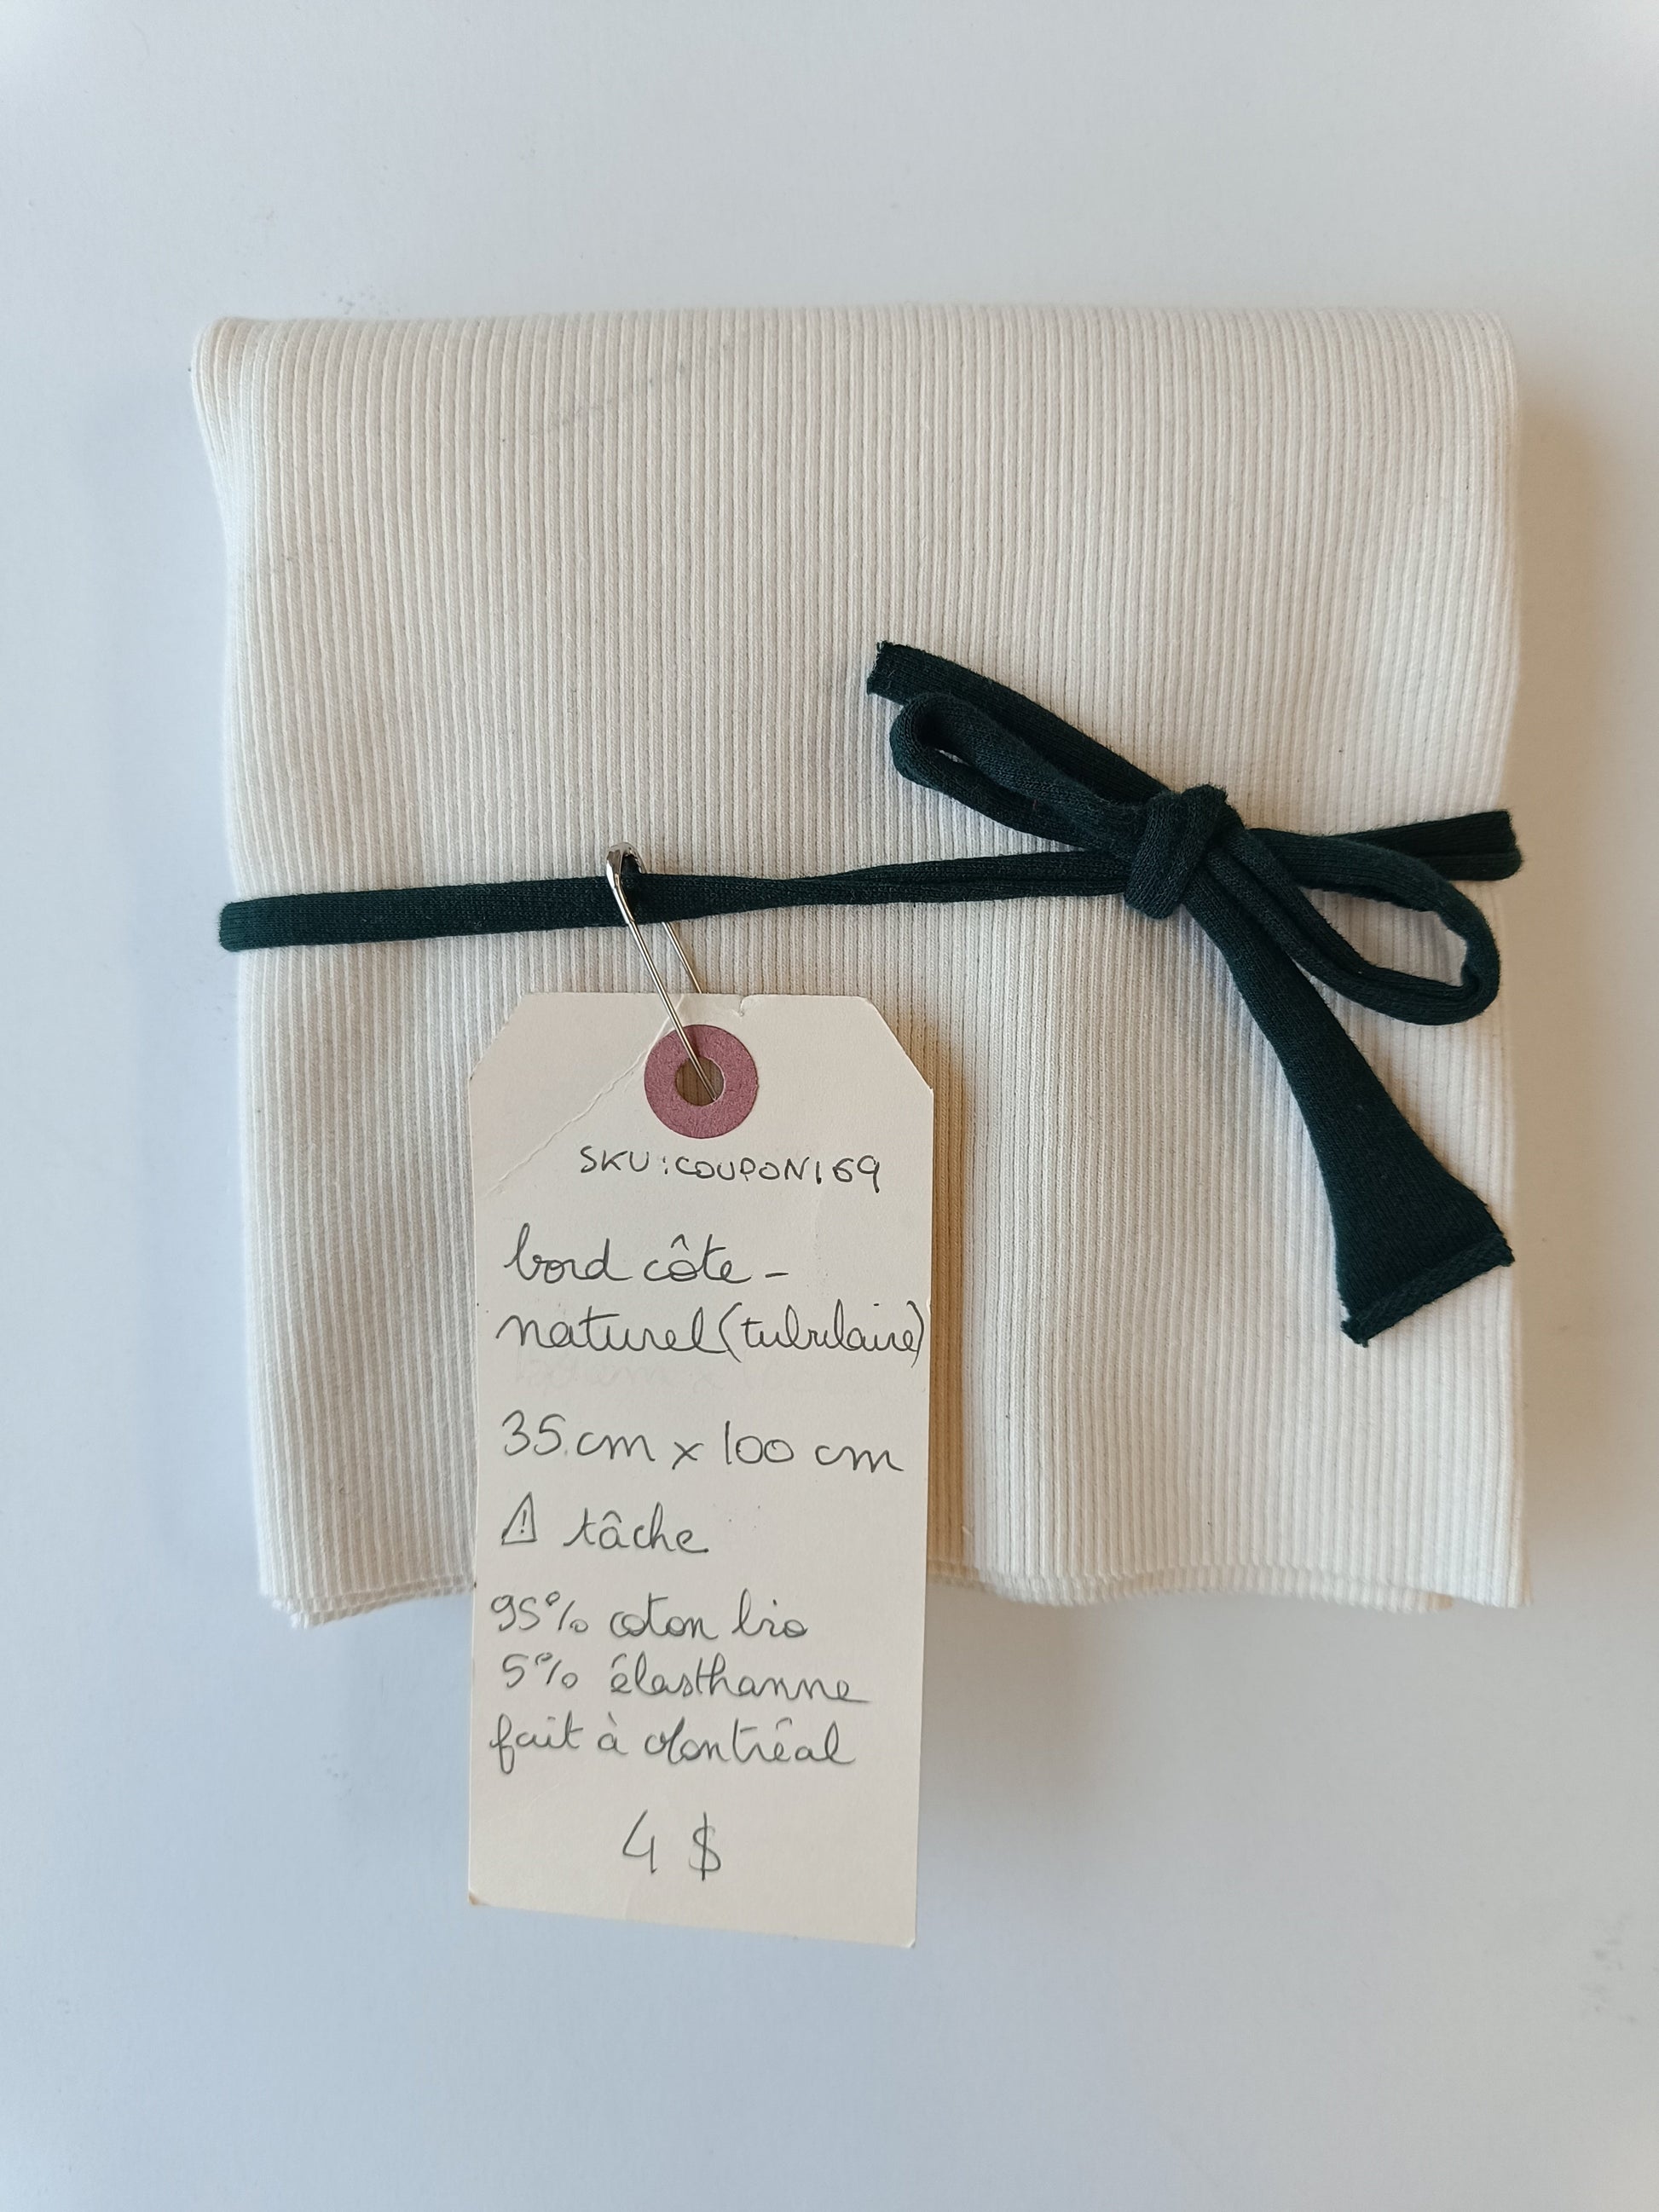 SKU:COUPON169
bord côte -
naturel (tubulaire)
35 cm x 100 cm
⚠ tâche
95% coton bio
5% élasthanne
fait à Montréal
4 $